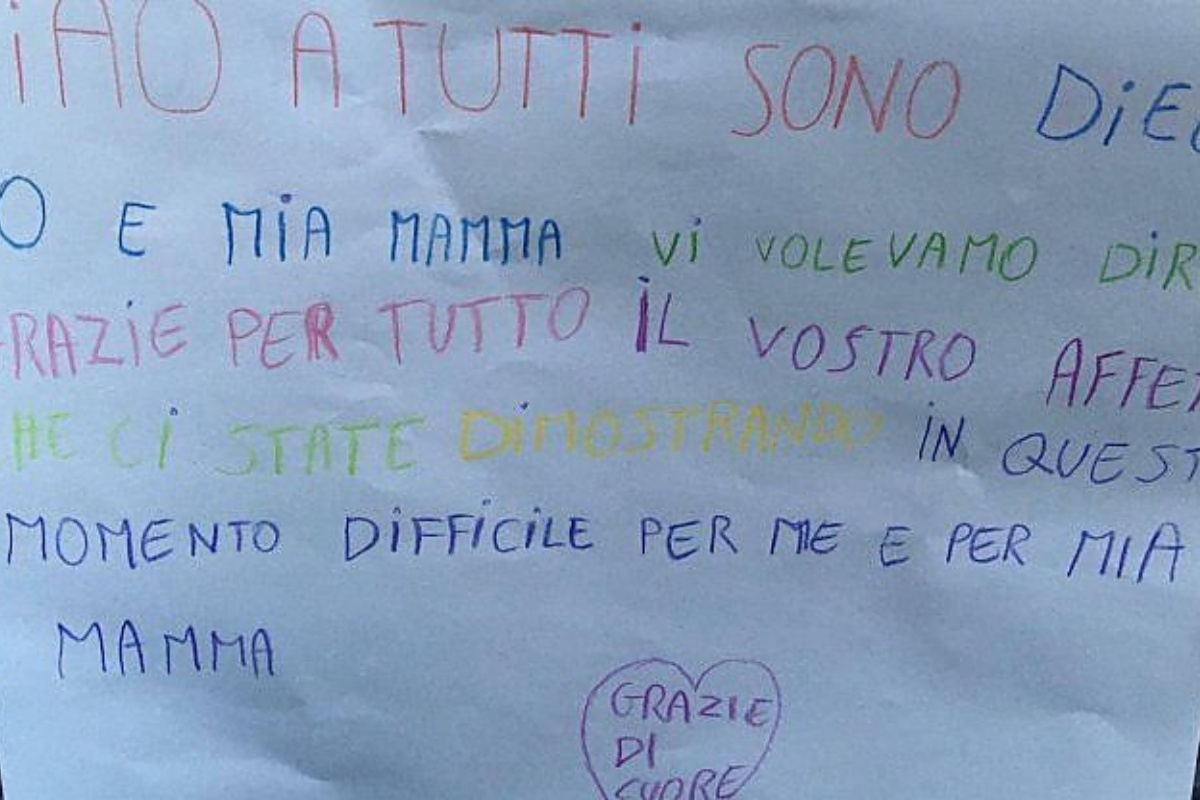 iAO A TUTTi SONO DiE
O E MiA MAMMA Vi VOLEVAMO DiR
RAZiE PER TUTTO iL VOSTRO AFFE
HE Ci STATE DiMOSTRANDO iN QUEST
MOMENTO DiFFiCiLE PER ME E PER MIA
MAMMA
GRAZIE
DI
CUORE